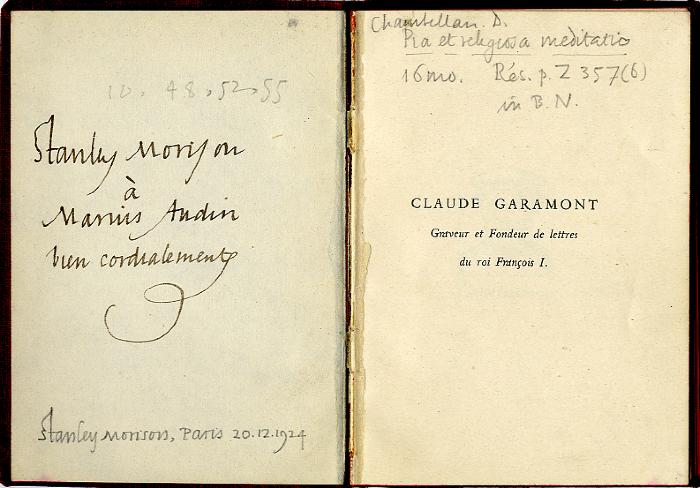 10. 48, 52, 55
Stanley Morison
à
Marius Audin
bien cordialement
Stanley Morison, Paris 20.12.1924
Chambellan. D.
Pia et religiosa meditatio
16mo. Rés. p. Z 357(6)
in B. N.
CLAUDE GARAMONT
Graveur et Fondeur de lettres
du roi François I.